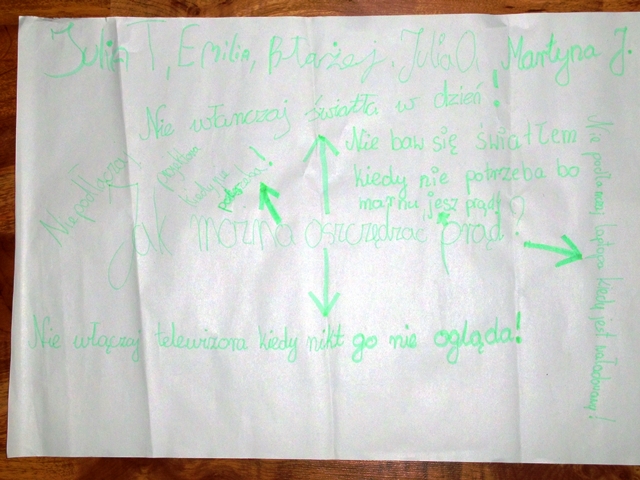 Julia T, Emilia, Błażej, Julia O, Martyna J.
Nie włanczaj światła w dzień!
Nie baw się światłem
kiedy nie potrzeba bo
marnujesz prąd
Nie podłączaj
kiedy
Jak można oszczędzać prąd?
Nie włączaj telewizora kiedy nikt go nie ogląda!
Nie podłanczaj laptopa kiedy jest naładowany!